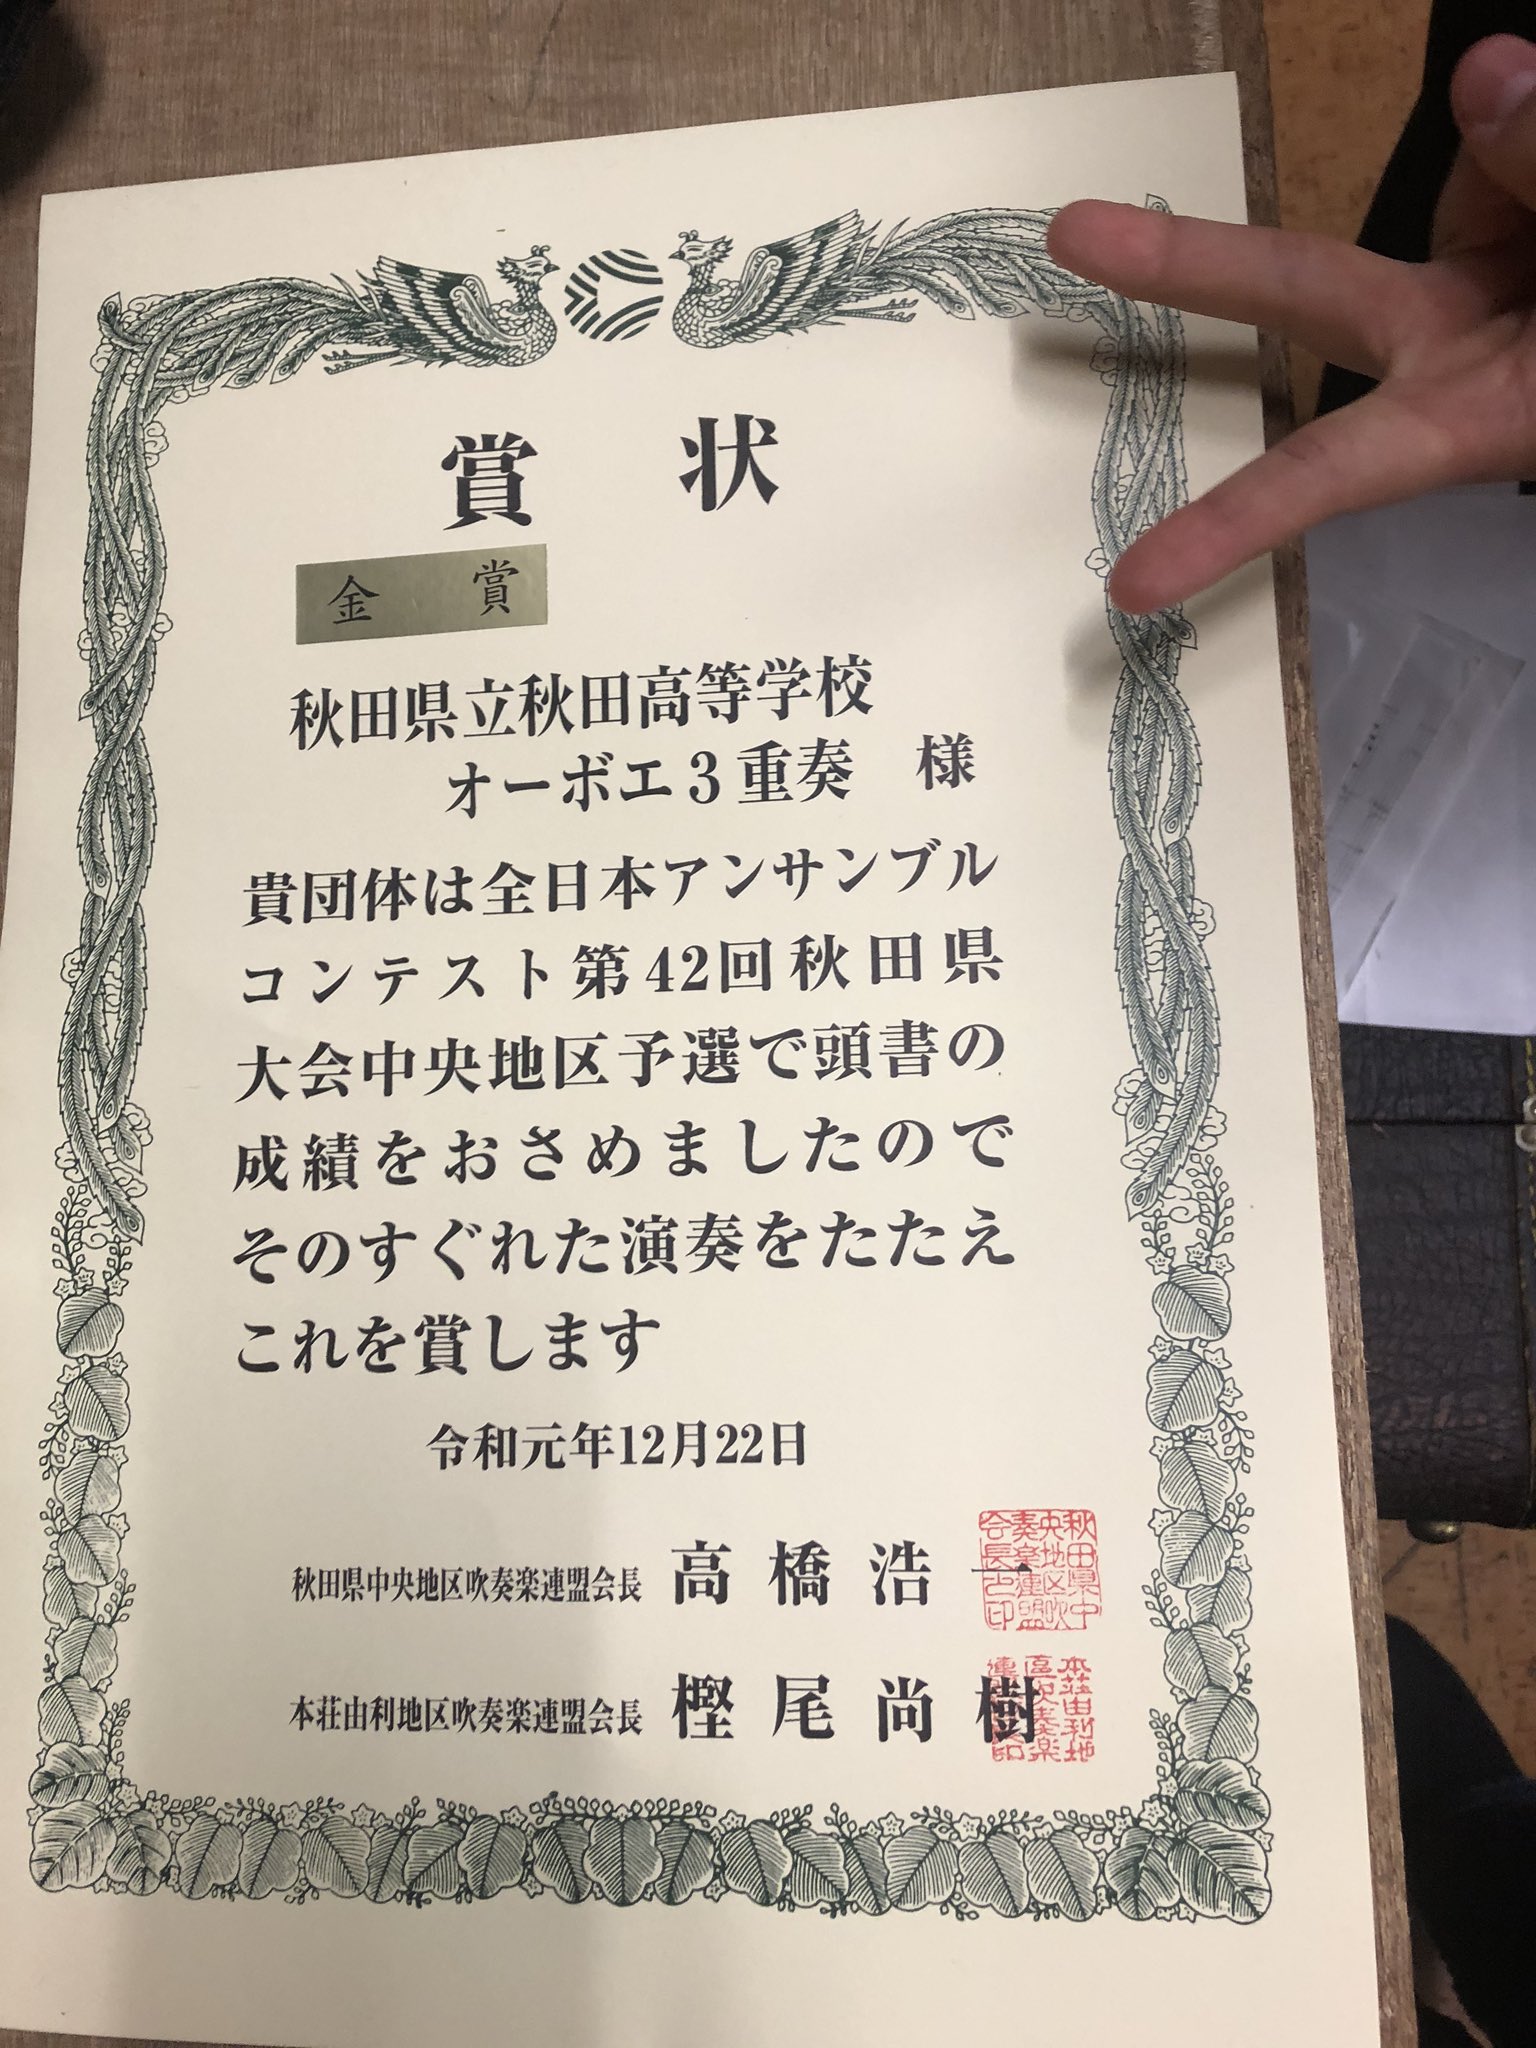 賞状
金賞
秋田県立秋田高等学校
オーボエ3重奏 様
貴団体は全日本アンサンブル
コンテスト第42回秋田県
大会中央地区予選で頭書の
成績をおさめましたので
そのすぐれた演奏をたたえ
これを賞します
令和元年12月22日
秋田県中央地区吹奏楽連盟会長 高橋浩一
秋田県中央地区吹奏楽連盟会長之印
本荘由利地区吹奏楽連盟会長 樫尾尚樹